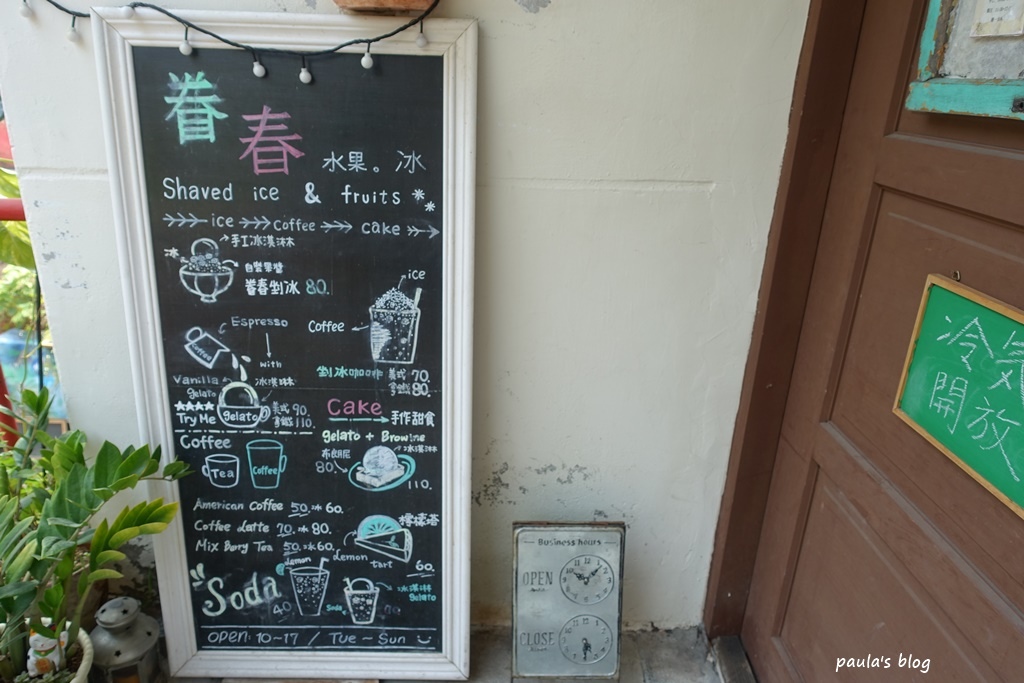 眷春 水果。冰
Shaved ice & fruits
ice coffee cake
手工冰淇淋
冰
自熬果醬
眷春剉冰 80.
ice
Coffee
剉冰咖啡 美式 70.
拿鐵 80.
Espresso
coffee
with
Vanilla gelato
冰淇淋
Try Me
gelato
美式 90.
拿鐵 110.
Cake
手作甜食
gelato + Browine
冰淇淋
布朗尼
80
110.
Coffee
Tea
Coffee
American Coffee 50. 冰 60.
Coffee Latte 70. 冰 80.
Mix Berry Tea 50. 冰 60.
檸檬塔
Lemon tart
60.
Soda
Lemon
40
Soda
冰淇淋
Gelato
OPEN: 10~17 / Tue ~ Sun
Business hours
OPEN
CLOSE
冷氣
開放
paula's blog